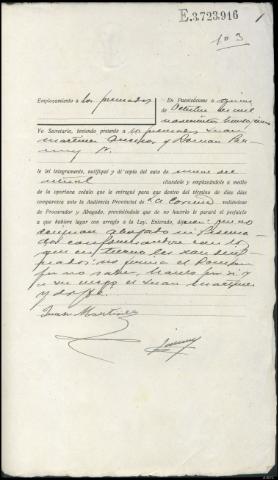 E.3723,916
1
1 o 3
Emplazamiento a los procesados
En Puentedeume a quince
de Octubre de mil
novecientos treinta y cinco
Yo Secretario, teniendo presente a los procesados Juan
Martinez
y
le leí íntegramente, notifiqué y dí copia del auto de nueve del
actual citándole y emplazándole a medio
de la oportuna cédula que le entregué para que dentro del término de diez días
comparezca ante la Audiencia Provincial de La Coruña, valiéndose
de Procurador y Abogado, percibiéndole que de no hacerlo le parará el perjuicio
a que hubiere lugar con arreglo a la Ley. Enterado, que no
designan abogado ni Procura
dor conformándose con lo
que en turno les sean desig
nados no firma el
por no saber, hacelo por si y
a su ruego el Juan Martinez
y doy fe.
Juan Martinez